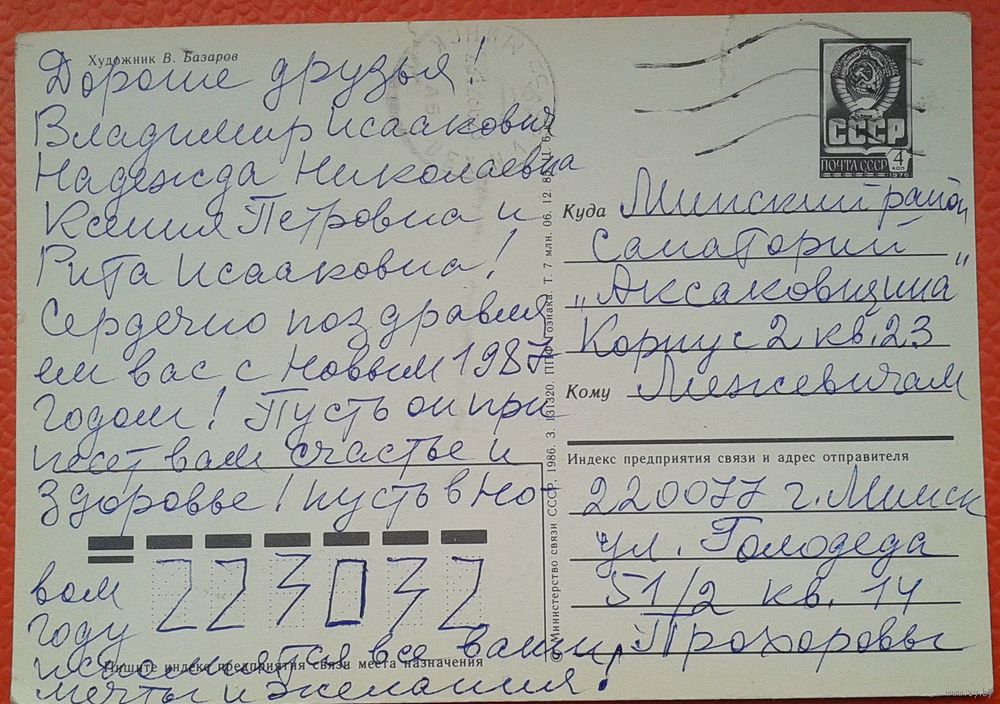 Художник В. Базаров
Дорогие друзья!
Владимир Исаакович
Надежда Николаевна
Ксения Петровна и
Рита Исааковна!
Сердечно поздравля
ем вас с Новым 1987
Годом! Пусть он при
несет вам счастье и
здоровье! Пусть в Но-
вом
году
исполнятся все ваши
мечты и желания!
223032
Пишите индекс предприятия связи места назначения
© Министерство связи СССР, 1986. З. 131320. ППФ Гознака. Т. 7 млн. 06. 12.
СССР
ПОЧТА СССР
4
КОП
1976
МИНСК
Куда Минский район
Санаторий
„Аксаковщина"
Корпус 2 кв. 23
Кому Межевичам
Индекс предприятия связи и адрес отправителя
220077 г. Минск
ул. Голодеда
51/2 кв. 14
Прохоровы